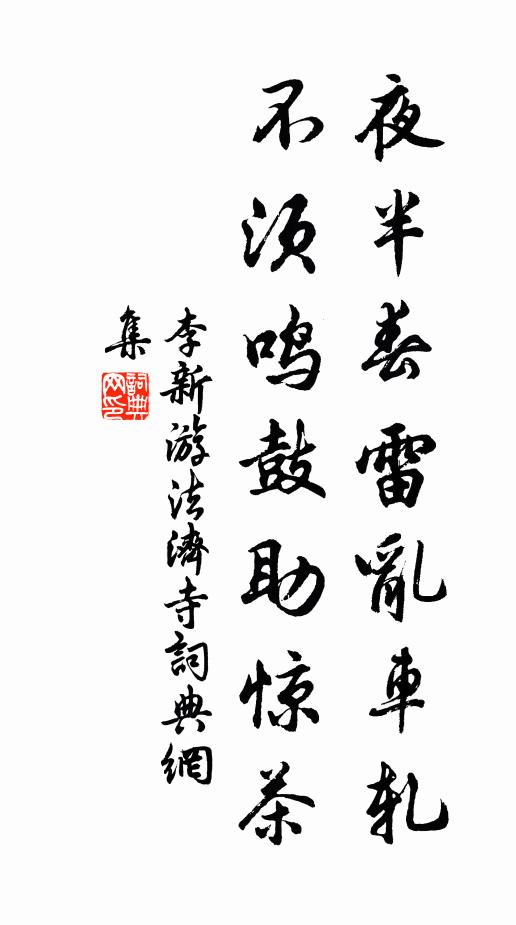 夜半春雷亂車軋
不須鸣鼓助惊茶
李新游法濟寺詞典網
集
詞典
网印